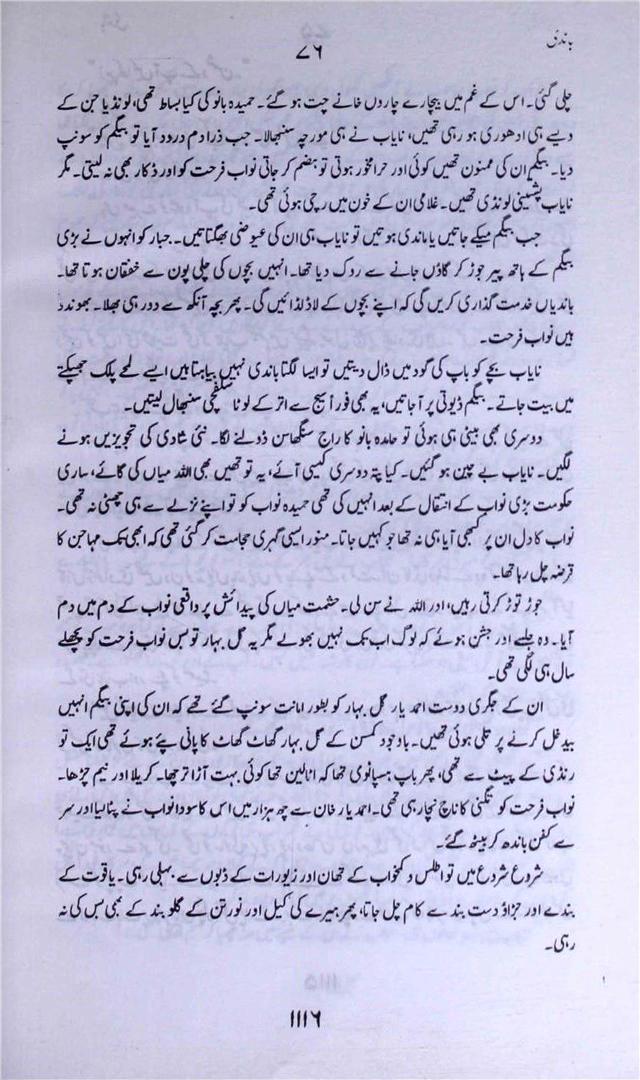 باندی
۷۶
چلی گئی۔ اس کے غم میں بیچارے چاروں خانے چت ہو گئے۔ حمیدہ بانو کی کیا بساط تھی، لونڈیا جن کے
ویسے ہی ادھوری ہو رہی تھیں، نایاب نے ہی مورچہ سنبھالا۔ جب ذرا دم درود آیا تو بیگم کو سونپ
دیا۔ بیگم ان کی ممنون تھیں کوئی اور حرامخور ہوتی تو ہضم کر جاتی نواب فرحت کو اور ڈکار بھی نہ لیتی۔ مگر
نایاب پشتینی لونڈی تھیں۔ غلامی ان کے خون میں رچی ہوئی تھی۔
جب بیگم میکے جاتیں یا ماندی ہوتیں تو نایاب ہی ان کی عیوضی بھگتاتیں۔ جبار کو انہوں نے بڑی
بیگم کے ہاتھ پیر جوڑ کر گاؤں جانے سے روک دیا تھا۔ انہیں بچوں کی چلی پون سے خفقان ہوتا تھا۔
باندیاں خدمت گذاری کریں گی کہ اپنے بچوں کے لاڈ لڈائیں گی۔ پھر بچہ آنکھ سے دور ہی بھلا۔ بھوندو
ہیں نواب فرحت۔
نایاب بچے کو باپ کی گود میں ڈال دیتیں تو ایسا لگتا باندی نہیں بیاہتا ہیں ایسے لمحے پلک جھپکتے
میں بیت جاتے۔ بیگم ڈیوٹی پر آ جاتیں، یہ بھی فوراً سیج سے اتر کے لوٹا سلفچی سنبھال لیتیں۔
دوسری بھی بیٹی ہی ہوئی تو حامدہ بانو کا راج سنگھاسن ڈولنے لگا۔ نئی شادی کی تجویزیں ہونے
لگیں۔ نایاب بے چین ہو گئیں۔ کیا پتہ دوسری کیسی آئے، یہ تو تھیں بھی اللہ میاں کی گائے، ساری
حکومت بڑی نواب کے انتقال کے بعد انہیں کی تھی حمیدہ نواب کو تو اپنے نزلے سے ہی چھٹی نہ تھی۔
نواب کا دل ان پر کبھی آیا ہی نہ تھا جو کہیں جاتا۔ منور ایسی گہری حجامت کر گئی تھی کہ ابھی تک مہاجن کا
قرضہ چل رہا تھا۔
جوڑ توڑ کرتی رہیں، اور اللہ نے سن لی۔ حشمت میاں کی پیدائش پر واقعی نواب کے دم میں دم
آیا۔ وہ جلسے اور جشن ہوئے کہ لوگ اب تک نہیں بھولے مگر یہ گل بہار تو بس نواب فرحت کو پچھلے
سال ہی لگی تھی۔
ان کے جگری دوست احمد یار گل بہار کو بطور امانت سونپ گئے تھے کہ ان کی اپنی بیگم انہیں
بیدخل کرنے پر تلی ہوئی تھیں۔ باوجود کمسن کے گل بہار گھاٹ گھاٹ کا پانی پئے ہوئے تھی ایک تو
رنڈی کے پیٹ سے تھی، پھر باپ ہسپانوی تھا کہ اٹالین تھا کوئی بہت آڑا ترچھا۔ کریلا اور نیم چڑھا۔
نواب فرحت کو تگنی کا ناچ نچا رہی تھی۔ احمد یار خان سے چھ ہزار میں اس کا سودا نواب نے پٹا لیا اور سر
سے کفن باندھ کر بیٹھ گئے۔
شروع شروع میں تو اطلس و کمخواب کے تھان اور زیورات کے ڈبوں سے بہلی رہی۔ یاقوت کے
بندے اور جڑاؤ دست بند سے کام چل جاتا، پھر ہیرے کی کیل اور نورتن کے گلوبند کے بھی بس کی نہ
رہی۔
۱۱۱۶